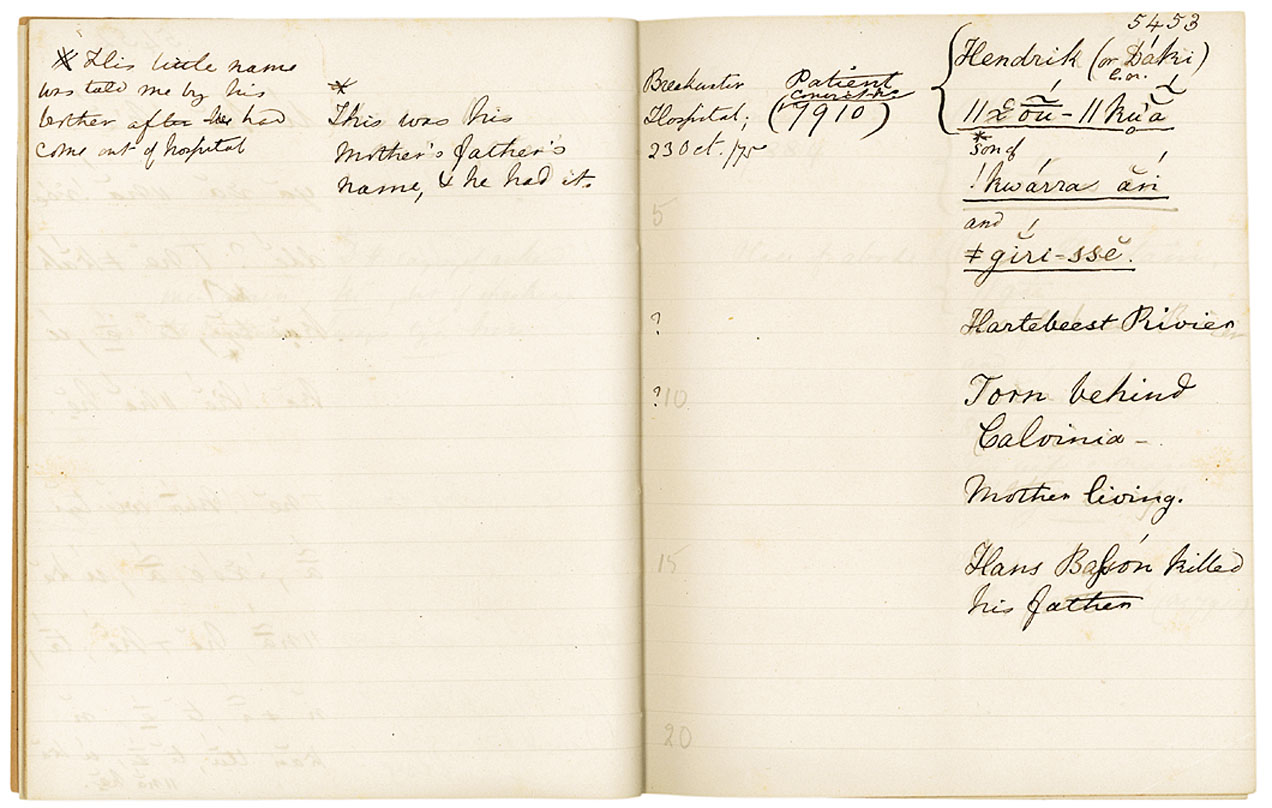 ※ This little name
was told me by his
brother after he had
come out of hospital
※
This was his
Mother's father's
name, & he had it.
5453
Breakwater
Hospital;
23 Oct. /75
Patient
(7910)
Hendrik (or Dáki)
son of
!kwárra ăn
and
ǂgĭri-ssĕ.
?
Hartebeest Rivier
?
Torn behind
Calvinia –
Mother living.
Hans Bassón killed
his father
5
10
15
20